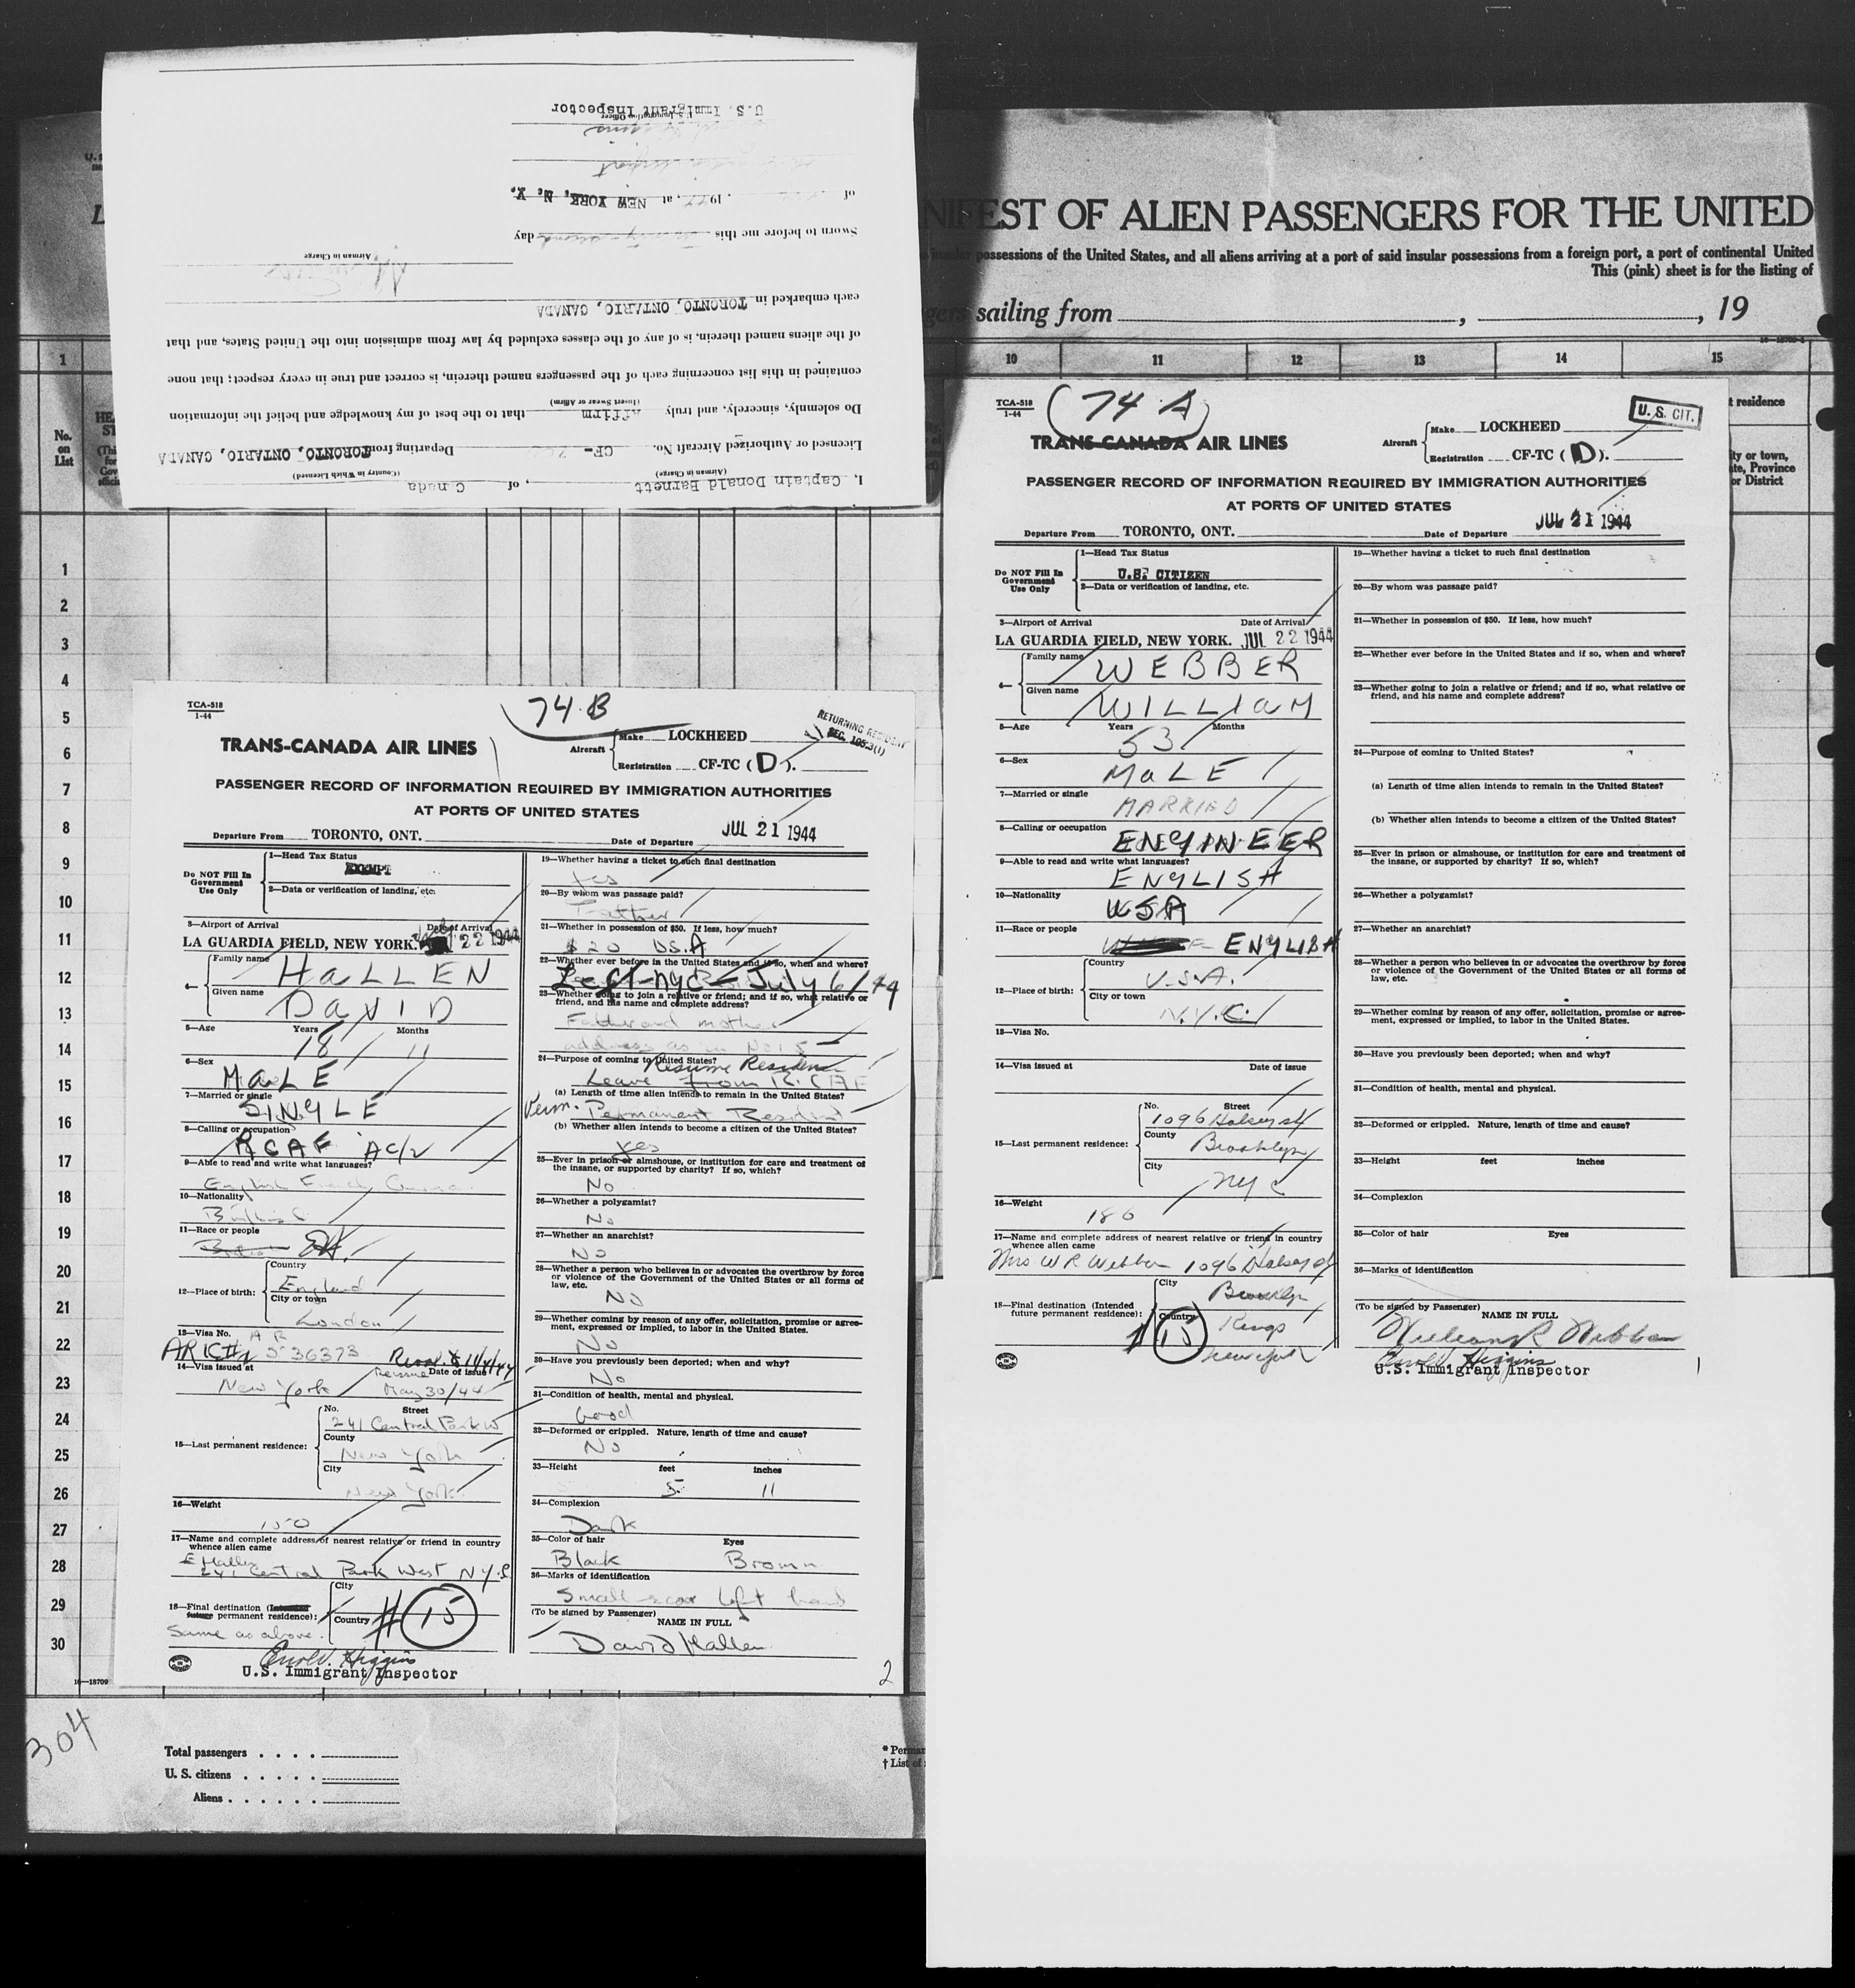 NIFEST OF ALIEN PASSENGERS FOR THE UNITED
possessions of the United States, and all aliens arriving at a port of said insular possessions from a foreign port, a port of continental United
This (pink) sheet is for the listing of
sailing from , , 19
1 10 11 12 13 14 15
No.
on
List
residence
ty or town,
te, Province
or District
I, Captain Donald Barnett , of C nada
(Airman in Charge) (Country in Which Licensed)
Licensed or Authorized Aircraft No. CF- Departing from TORONTO, ONTARIO, CANADA
Do solemnly, sincerely, and truly Affirm that to the best of my knowledge and belief the information
(Insert Swear or Affirm)
contained in this list concerning each of the passengers named therein, is correct and true in every respect; that none
of the aliens named therein, is of any of the classes excluded by law from admission into the United States, and that
each embarked in TORONTO, ONTARIO, CANADA
Airman in Charge
Sworn to before me this day
of , 19 , at NEW YORK, N. Y.
U.S. Immigration Officer
U.S. Immigrant Inspector
1
2
3
4
5
6
7
8
9
10
11
12
13
14
15
16
17
18
19
20
21
22
23
24
25
26
27
28
29
30
16—18709
304
Total passengers . . . .
U. S. citizens . . . . .
Aliens . . . . . .
TCA-518
1-44
74 B
RETURNING RESIDENT
TRANS-CANADA AIR LINES
Aircraft Make LOCKHEED
Registration CF-TC ( D ).
PASSENGER RECORD OF INFORMATION REQUIRED BY IMMIGRATION AUTHORITIES
AT PORTS OF UNITED STATES
JUL 21 1944
Departure From TORONTO, ONT. Date of Departure
Do NOT Fill In
Government
Use Only
1—Head Tax Status
EXEMPT
2—Data or verification of landing, etc.
3—Airport of Arrival Date of Arrival
LA GUARDIA FIELD, NEW YORK. July 22 1944
4— Family name HALLEN
Given name DAVID
5—Age Years 18 Months 11
6—Sex MALE
7—Married or single SINGLE
8—Calling or occupation RCAF AC/2
9—Able to read and write what languages?
English French German
10—Nationality
British
11—Race or people
12—Place of birth: Country England
City or town London
13—Visa No. AR
ARIC# 536373
14—Visa issued at Date of issue
New York May 30/44
15—Last permanent residence: No. Street
241 Central Park W
County New York
City New York
16—Weight
150
17—Name and complete address of nearest relative or friend in country
whence alien came
E Hallen
241 Central Park West N.Y.C
18—Final destination (Intended
future permanent residence): City
Country # 15
Same as above.
Errol V. Higgins
U.S. Immigrant Inspector
19—Whether having a ticket to such final destination
Yes
20—By whom was passage paid?
Father
21—Whether in possession of $50. If less, how much?
$20 U.S.A
22—Whether ever before in the United States and if so, when and where?
Left NYC - July 6/44
23—Whether going to join a relative or friend; and if so, what relative or
friend, and his name and complete address?
Father and mother
address as in No 15
24—Purpose of coming to United States?
Resume Residence
Leave from R.CAF
(a) Length of time alien intends to remain in the United States?
Perm. Permanent Resident
(b) Whether alien intends to become a citizen of the United States?
Yes
25—Ever in prison or almshouse, or institution for care and treatment of
the insane, or supported by charity? If so, which?
No
26—Whether a polygamist?
No
27—Whether an anarchist?
No
28—Whether a person who believes in or advocates the overthrow by force
or violence of the Government of the United States or all forms of
law, etc.
No
29—Whether coming by reason of any offer, solicitation, promise or agree-
ment, expressed or implied, to labor in the United States.
No
30—Have you previously been deported; when and why?
No
31—Condition of health, mental and physical.
Good
32—Deformed or crippled. Nature, length of time and cause?
No
33—Height feet inches
5 11
34—Complexion
Dark
35—Color of hair Eyes
Black Brown
36—Marks of identification
Small scar left hand
(To be signed by Passenger)
NAME IN FULL
David Hallen
2
TCA-518
1-44
74 A
U. S. CIT.
TRANS-CANADA AIR LINES
Aircraft Make LOCKHEED
Registration CF-TC ( D ).
PASSENGER RECORD OF INFORMATION REQUIRED BY IMMIGRATION AUTHORITIES
AT PORTS OF UNITED STATES
JUL 21 1944
Departure From TORONTO, ONT. Date of Departure
Do NOT Fill In
Government
Use Only
1—Head Tax Status
U.S. CITIZEN
2—Data or verification of landing, etc.
3—Airport of Arrival Date of Arrival
LA GUARDIA FIELD, NEW YORK. JUL 22 1944
4— Family name WEBBER
Given name WILLIAM
5—Age Years 53 Months
6—Sex MALE
7—Married or single MARRIED
8—Calling or occupation ENGINEER
9—Able to read and write what languages?
ENGLISH
10—Nationality USA
11—Race or people ENGLISH
12—Place of birth: Country U.S.A.
City or town N.Y.C.
13—Visa No.
14—Visa issued at Date of issue
15—Last permanent residence: No. Street
1096 Halsey st
County Brooklyn
City NYC
16—Weight
186
17—Name and complete address of nearest relative or friend in country
whence alien came
Mrs W R Webber 1096 Halsey st
18—Final destination (Intended
future permanent residence): City Brooklyn
Country Kings
# 15 New York
19—Whether having a ticket to such final destination
20—By whom was passage paid?
21—Whether in possession of $50. If less, how much?
22—Whether ever before in the United States and if so, when and where?
23—Whether going to join a relative or friend; and if so, what relative or
friend, and his name and complete address?
24—Purpose of coming to United States?
(a) Length of time alien intends to remain in the United States?
(b) Whether alien intends to become a citizen of the United States?
25—Ever in prison or almshouse, or institution for care and treatment of
the insane, or supported by charity? If so, which?
26—Whether a polygamist?
27—Whether an anarchist?
28—Whether a person who believes in or advocates the overthrow by force
or violence of the Government of the United States or all forms of
law, etc.
29—Whether coming by reason of any offer, solicitation, promise or agree-
ment, expressed or implied, to labor in the United States.
30—Have you previously been deported; when and why?
31—Condition of health, mental and physical.
32—Deformed or crippled. Nature, length of time and cause?
33—Height feet inches
34—Complexion
35—Color of hair Eyes
36—Marks of identification
(To be signed by Passenger)
NAME IN FULL
William R Webber
Errol V. Higgins
U.S. Immigrant Inspector